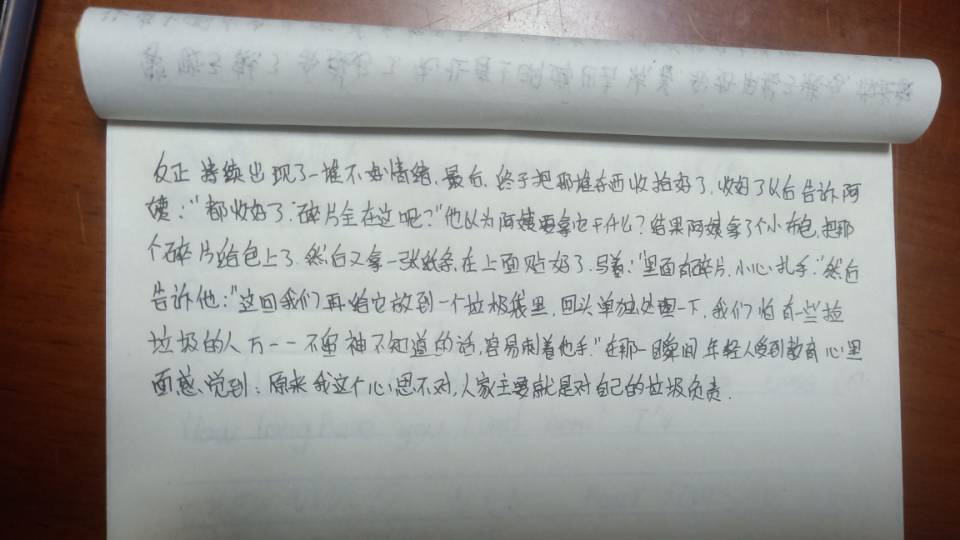 反正持续出现了一堆不好情绪.最后.终于把那堆东西收拾好了.收好了以后告诉阿
姨:"都收好了."碎片全在这吧?"他以为阿姨要拿它干什么?结果阿姨拿了个小布包.把那
个碎片给包上了.然后又拿一张纸条.在上面贴好了.写着:"里面有碎片.小心扎手."然后
告诉他:"这回我们再给它放到一个垃圾袋里.回头单独处理一下.我们怕有一些捡
垃圾的人万一一不留神不知道的话,容易刺着他手."在那一瞬间年轻人受到教育心里
面感觉到:原来我这个心思不对,人家主要就是对自己的垃圾负责.